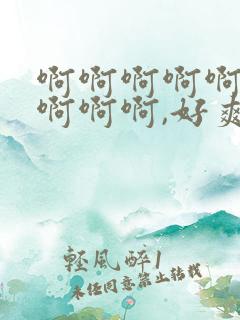 啊啊啊啊啊
啊啊啊,好爽
軽風醉1
未经同意禁止转载